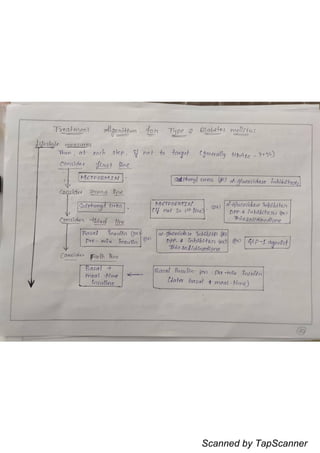 Treatment Algorithm for Type 2 Diabetes mellitus
Lifestyle measures
Then, at each step, if not to target (generally HbA1c - 7.0%)
Consider first line
METFORMIN
Sulphonyl ureas (or) α-glucosidase Inhibitors
Consider second line
Sulphonyl ureas
METFORMIN
(if not in 1st line)
(or)
α-glucosidase Inhibitors
DPP-4 Inhibitors (or)
Thiazolidinedione
Consider third line
Basal Insulin (or)
Pre-mix Insulin
(or)
α-glucosidase Inhibitors (or)
DPP-4 Inhibitors (or)
Thiazolidinedione
(or)
GLP-1 agonist
Consider fourth line
Basal +
meal time
Insulin
Basal Insulin (or) Pre-mix Insulin
(later basal + meal time)
Scanned by TapScanner